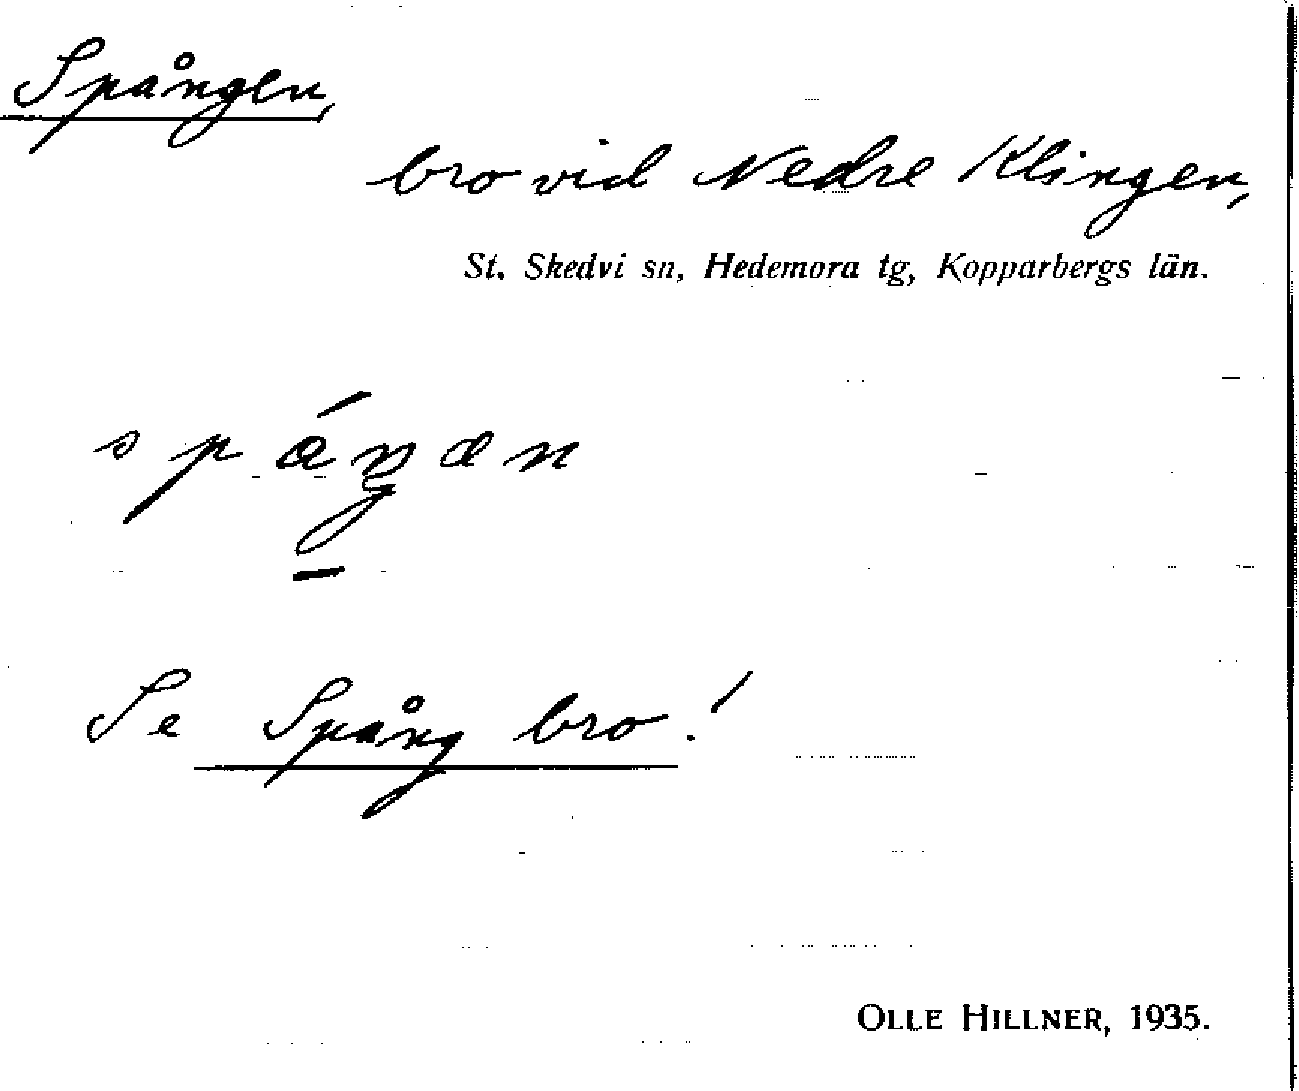 Spången,
bro vid Nedre Klingen,
St. Skedvi sn, Hedemora tg, Kopparbergs län.
Se Spång bro!
OLLE HILLNER, 1935.